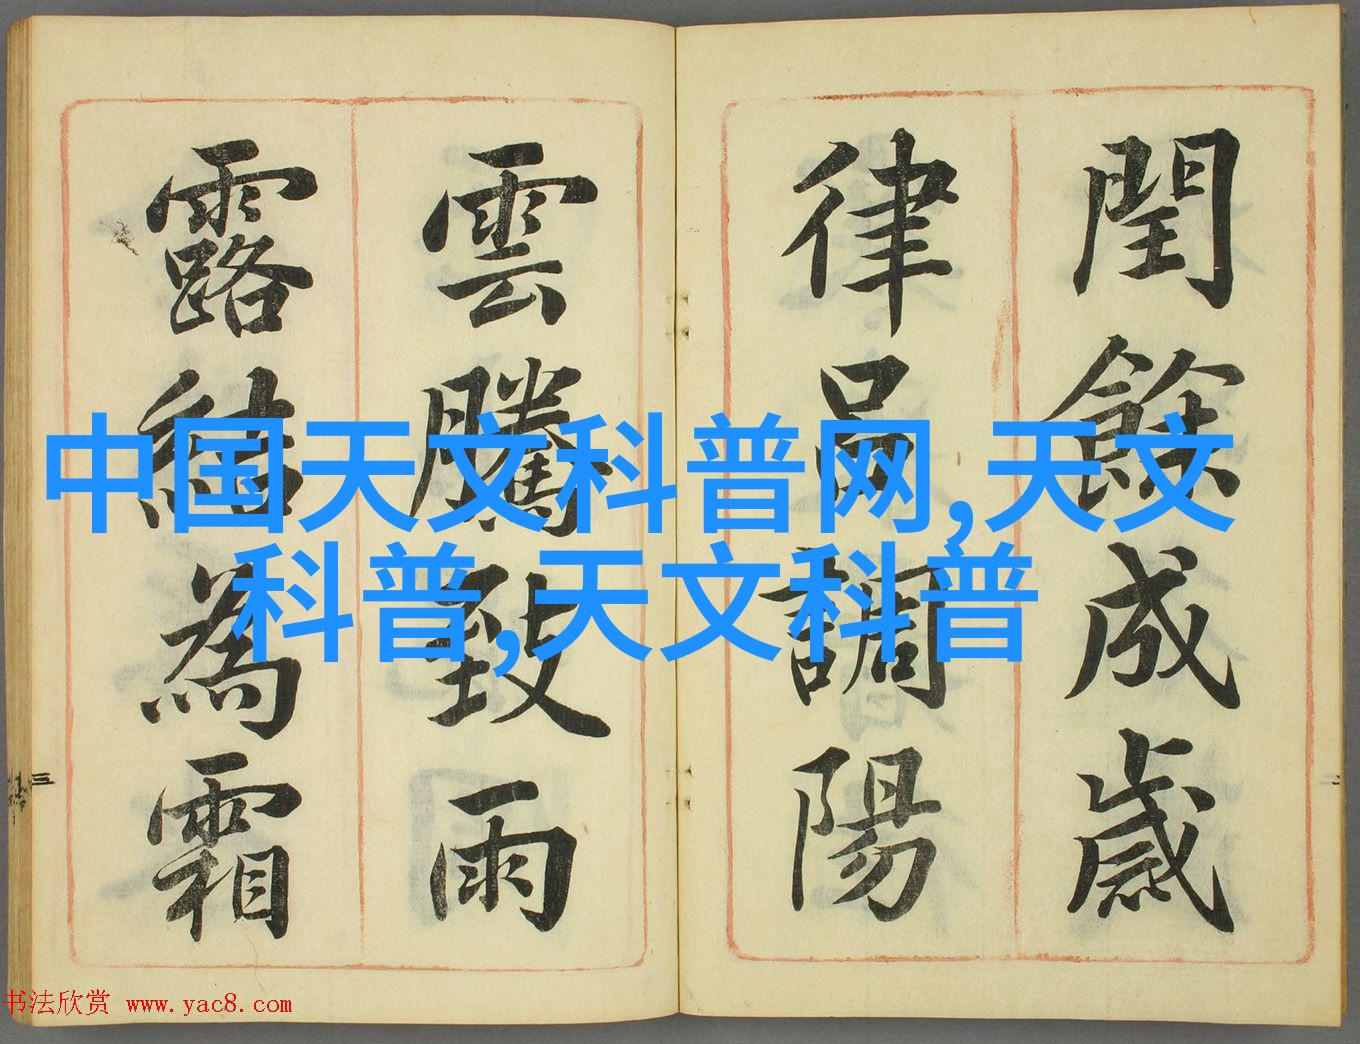 閏餘成歲
律呂調陽
雲騰致雨
露結為霜
中国天文科普网,天文
科普,天文科普
三
二
书法欣赏 www.yac8.com